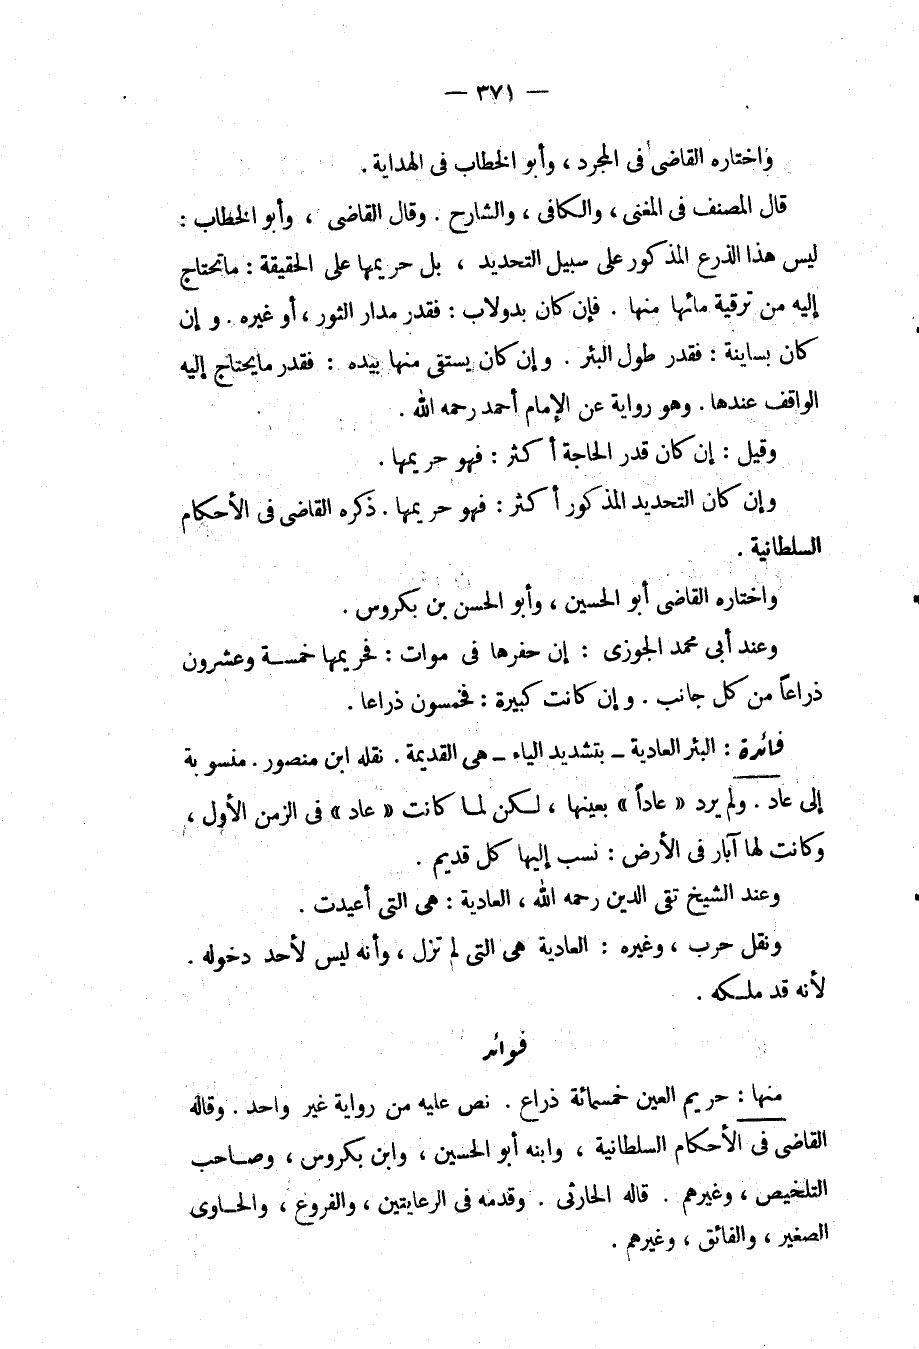 — ٣٧١ —
واختاره القاضى فى المجرد ، وأبو الخطاب فى الهداية .
قال المصنف فى المغنى ، والكافى ، والشارح . وقال القاضى ، وأبو الخطاب :
ليس هذا الذرع المذكور على سبيل التحديد ، بل حريمها على الحقيقة : ماتحتاج
إليه من ترقية مائها منها . فإن كان بدولاب : فقدر مدار الثور ، أو غيره . وإن
كان بسانية : فقدر طول البئر . وإن كان يستقى منها بيده : فقدر مايحتاج إليه
الواقف عندها . وهو رواية عن الإمام أحمد رحمه الله .
وقيل : إن كان قدر الحاجة أكثر : فهو حريمها .
وإن كان التحديد المذكور أكثر : فهو حريمها . ذكره القاضى فى الأحكام
السلطانية .
واختاره القاضى أبو الحسين ، وأبو الحسن بن بكروس .
وعند أبى محمد الجوزى : إن حفرها فى موات : فحريمها خمسة وعشرون
ذراعاً من كل جانب . وإن كانت كبيرة : فخمسون ذراعا .
فائدة : البئر العادية ــ بتشديد الياء ــ هى القديمة . نقله ابن منصور . منسوبة
إلى عاد . ولم يرد « عاداً » بعينها ، لكن لما كانت « عاد » فى الزمن الأول ،
وكانت لها آبار فى الأرض : نسب إليها كل قديم .
وعند الشيخ تقى الدين رحمه الله ، العادية : هى التى أعيدت .
ونقل حرب ، وغيره : العادية هى التى لم تزل ، وأنه ليس لأحد دخوله .
لأنه قد ملكه .
فوائد
منها : حريم العين خمسمائة ذراع . نص عليه من رواية غير واحد . وقاله
القاضى فى الأحكام السلطانية ، وابنه أبو الحسين ، وابن بكروس ، وصاحب
التلخيص ، وغيرهم . قاله الحارثى . وقدمه فى الرعايتين ، والفروع ، والحاوى
الصغير ، والفائق ، وغيرهم .